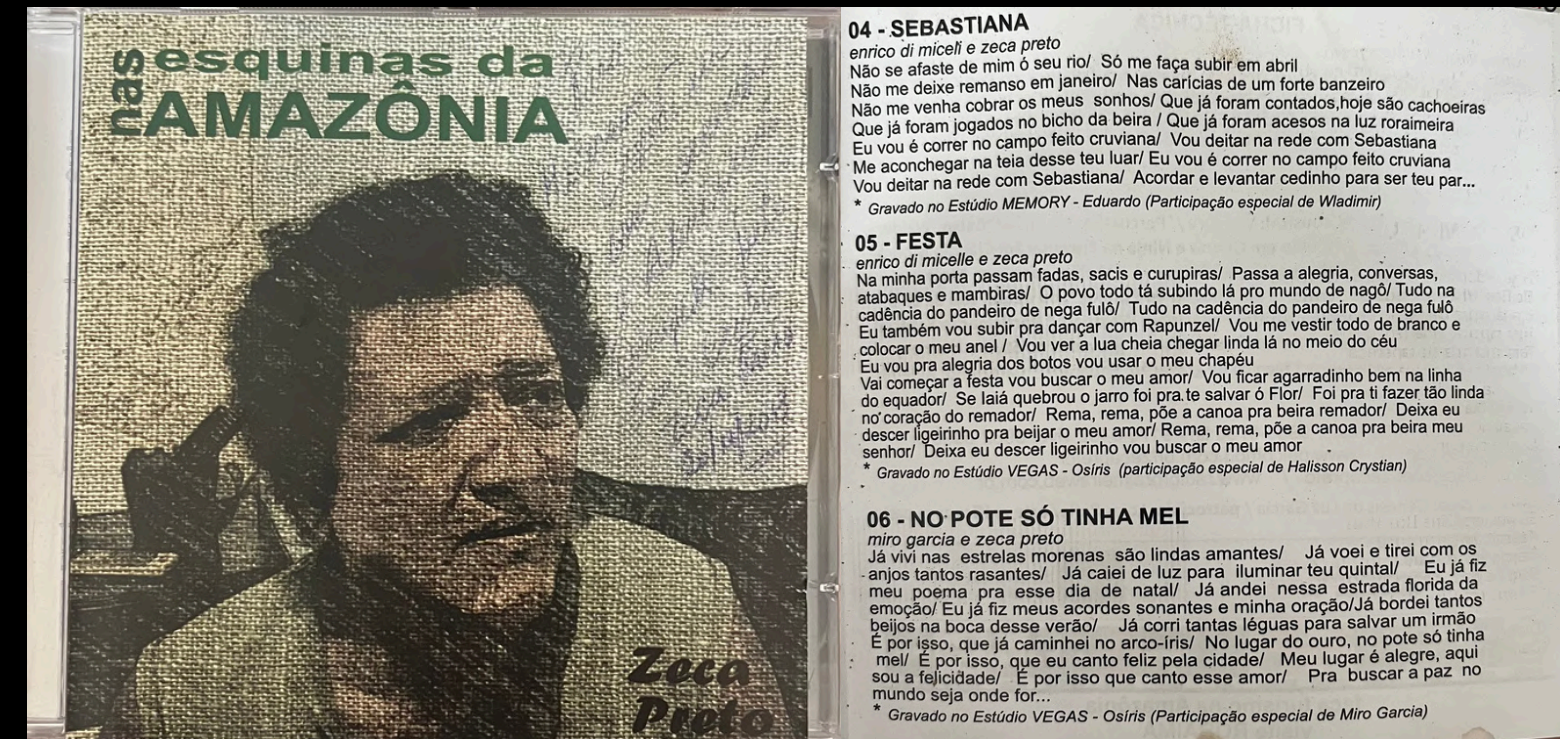 nas esquinas da
AMAZÔNIA
Zeca
Preto
04 - SEBASTIANA
enrico di miceli e zeca preto
Não se afaste de mim ó seu rio/ Só me faça subir em abril
Não me deixe remanso em janeiro/ Nas carícias de um forte banzeiro
Não me venha cobrar os meus sonhos/ Que já foram contados,hoje são cachoeiras
Que já foram jogados no bicho da beira / Que já foram acesos na luz roraimeira
Eu vou é correr no campo feito cruviana/ Vou deitar na rede com Sebastiana
Me aconchegar na teia desse teu luar/ Eu vou é correr no campo feito cruviana
Vou deitar na rede com Sebastiana/ Acordar e levantar cedinho para ser teu par...
* Gravado no Estúdio MEMORY - Eduardo (Participação especial de Wladimir)
05 - FESTA
enrico di micelle e zeca preto
Na minha porta passam fadas, sacis e curupiras/ Passa a alegria, conversas,
atabaques e mambiras/ O povo todo tá subindo lá pro mundo de nagô/ Tudo na
cadência do pandeiro de nega fulô/ Tudo na cadência do pandeiro de nega fulô
Eu também vou subir pra dançar com Rapunzel/ Vou me vestir todo de branco e
colocar o meu anel / Vou ver a lua cheia chegar linda lá no meio do céu
Eu vou pra alegria dos botos vou usar o meu chapéu
Vai começar a festa vou buscar o meu amor/ Vou ficar agarradinho bem na linha
do equador/ Se Iaiá quebrou o jarro foi pra te salvar ó Flor/ Foi pra ti fazer tão linda
no coração do remador/ Rema, rema, põe a canoa pra beira remador/ Deixa eu
descer ligeirinho pra beijar o meu amor/ Rema, rema, põe a canoa pra beira meu
senhor/ Deixa eu descer ligeirinho vou buscar o meu amor
* Gravado no Estúdio VEGAS - Osíris (participação especial de Halisson Crystian)
06 - NO POTE SÓ TINHA MEL
miro garcia e zeca preto
Já vivi nas estrelas morenas são lindas amantes/ Já voei e tirei com os
anjos tantos rasantes/ Já caiei de luz para iluminar teu quintal/ Eu já fiz
meu poema pra esse dia de natal/ Já andei nessa estrada florida da
emoção/ Eu já fiz meus acordes sonantes e minha oração/Já bordei tantos
beijos na boca desse verão/ Já corri tantas léguas para salvar um irmão
É por isso, que já caminhei no arco-íris/ No lugar do ouro, no pote só tinha
mel/ É por isso, que eu canto feliz pela cidade/ Meu lugar é alegre, aqui
sou a felicidade/ É por isso que canto esse amor/ Pra buscar a paz no
mundo seja onde for...
* Gravado no Estúdio VEGAS - Osíris (Participação especial de Miro Garcia)